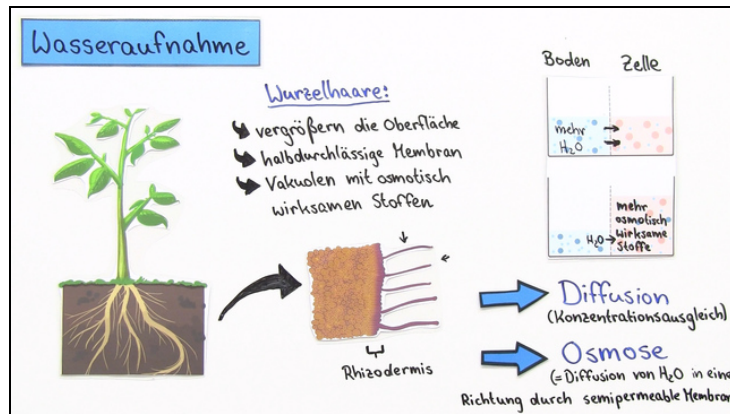 Wasseraufnahme
Wurzelhaare:
vergrößern die Oberfläche
halbdurchlässige Membran
Vakuolen mit osmotisch
wirksamen Stoffen
Boden Zelle
mehr
H₂O
mehr
osmotisch
wirksame
Stoffe
H₂O
Rhizodermis
Diffusion
(Konzentrationsausgleich)
Osmose
(= Diffusion von H₂O in eine
Richtung durch semipermeable Membran